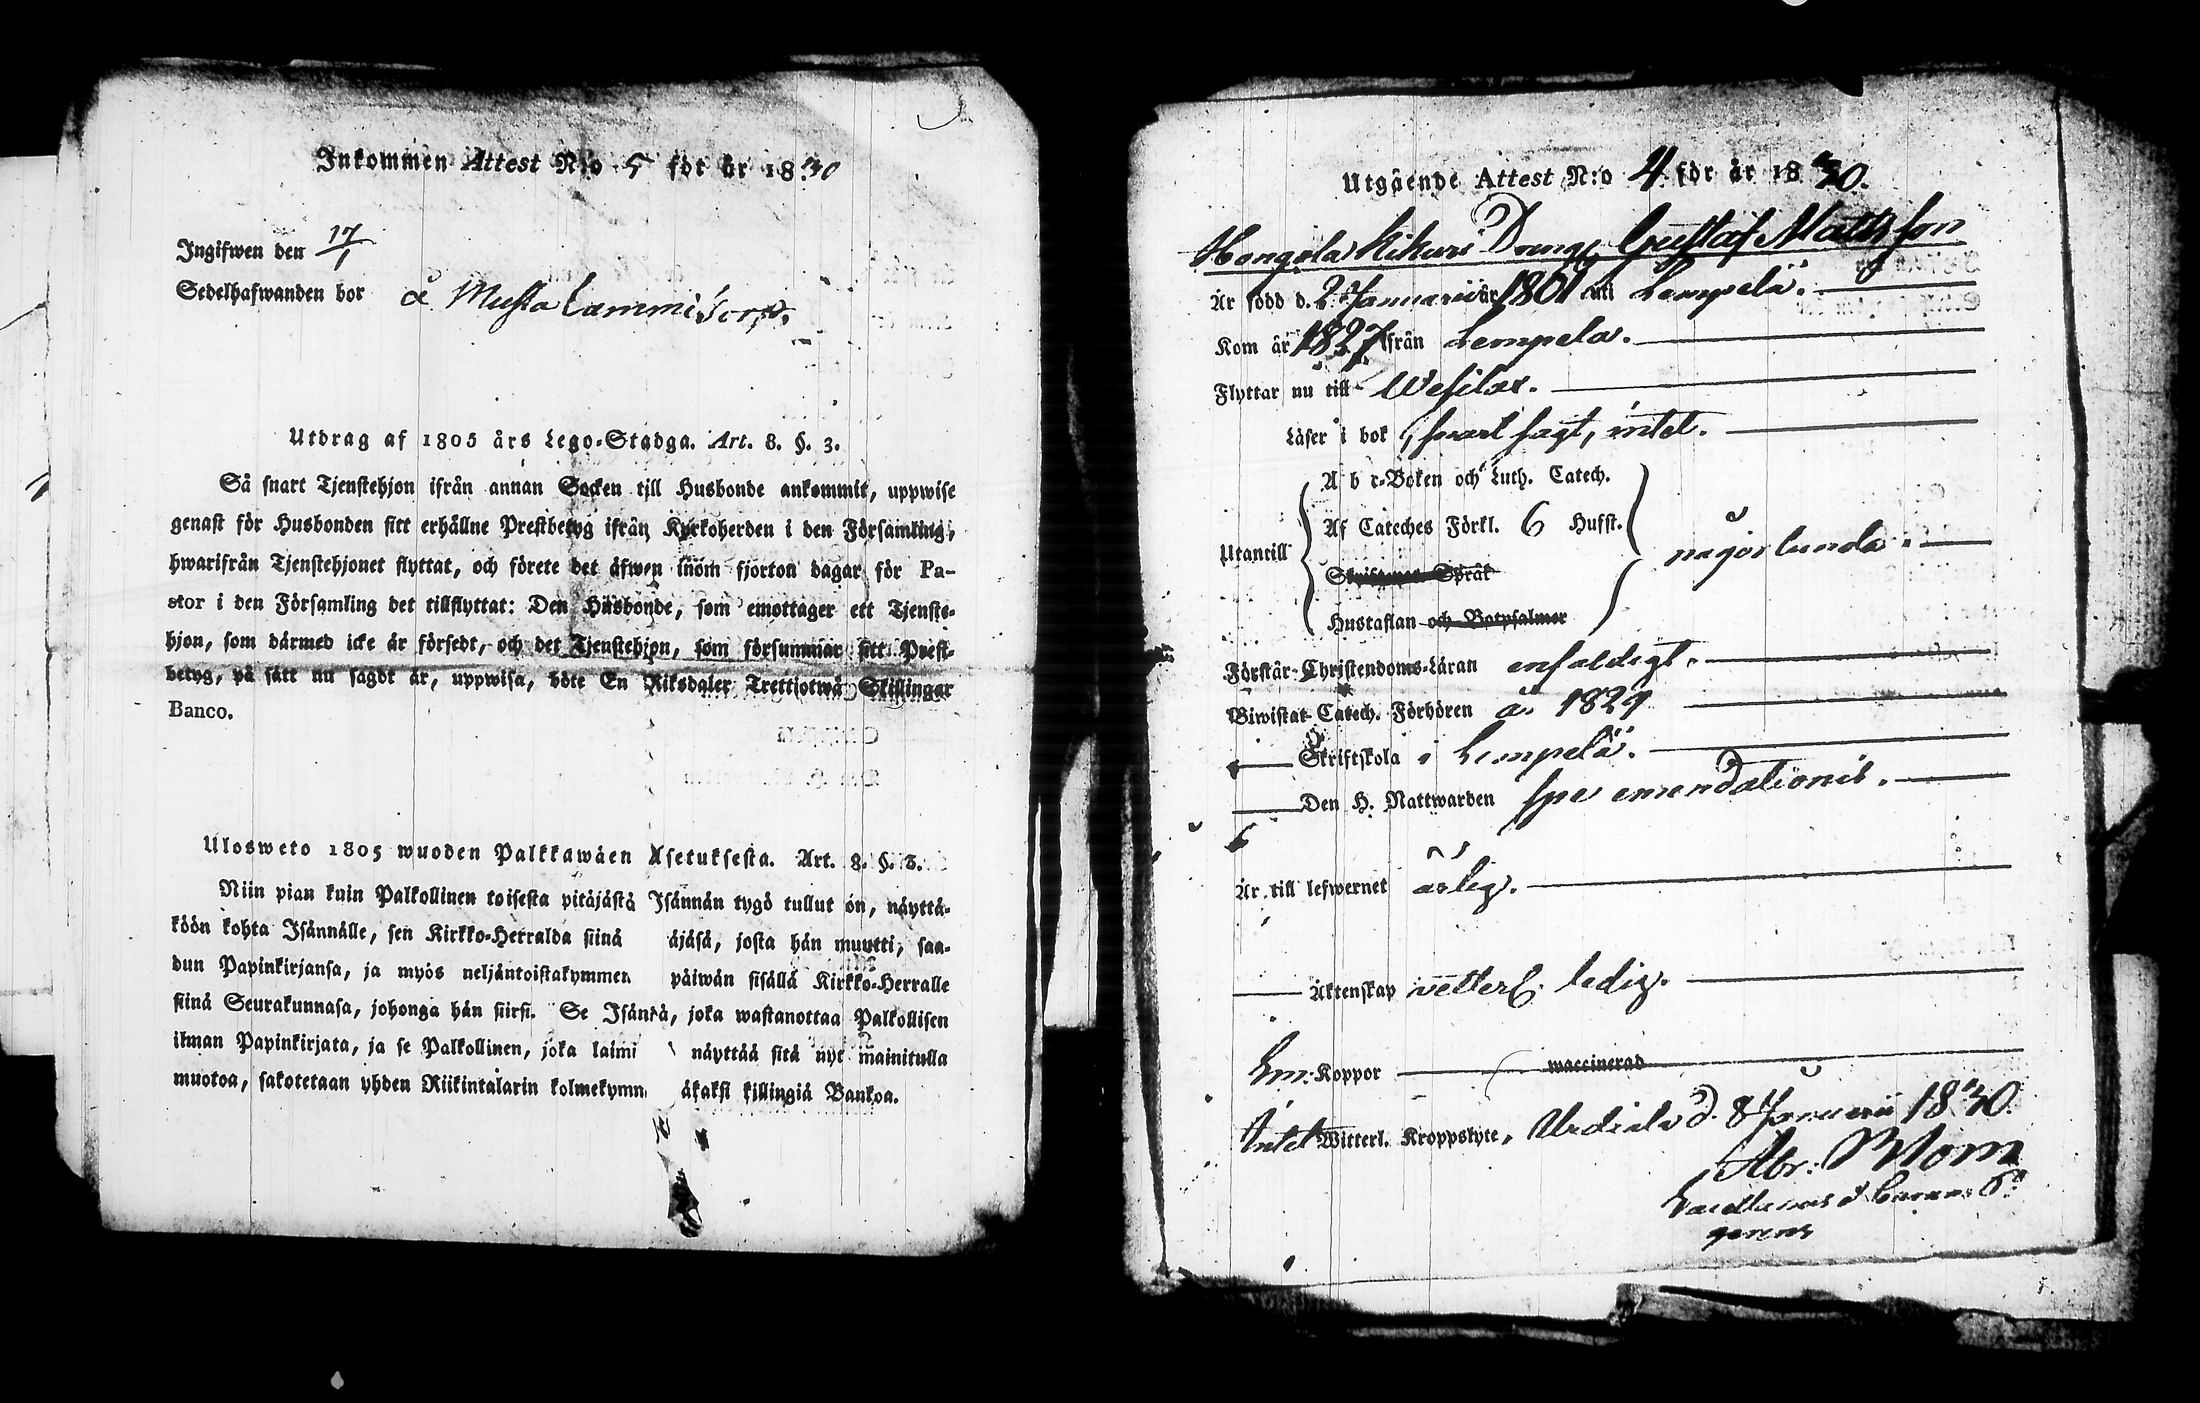 Inkommen Attest N:o 5 för år 1830
Ingifwen den 17/1
Sedelhafwanden bor å Musta Lammi Torp.
Utdrag af 1805 års Lego-Stadga. Art. 8. §. 3.
Så snart Tjenstehjon ifrån annan Socken till Husbonde ankommit, uppwise
genast för Husbonden sitt erhållne Prestbetyg ifrån Kyrkoherden i den Församling,
hwarifrån Tjenstehjonet flyttat, och förete det äfwen inom fjorton dagar för Pa-
stor i den Församling det tillflyttat: Den Husbonde, som emottager ett Tjenste-
hjon, som därmed icke är försedt, och det Tjenstehjon, som försummar sitt Prest-
betyg, på sätt nu sagdt är, uppwisa, böte En Riksdaler Trettiotwå Skillingar
Banco.
Ulosweto 1805 wuoden Palkkawäen Asetuksesta. Art. 8. §. 3.
Niin pian kuin Palkollinen toisesta pitäjästä Isännän tygö tullut on, näyttä-
köön kohta Isännälle, sen Kirkko-Herralda siinä äjäsä, josta hän muutti, saa-
dun Papinkirjansa, ja myös neljäntoistakymmen päiwän sisällä Kirkko-Herralle
siinä Seurakunnasa, johonga hän siirsi. Se Isäntä, joka wastanottaa Palkollisen
ilman Papinkirjata, ja se Palkollinen, joka laimi näyttää sitä nyt mainitulla
muotoa, sakotetaan yhden Riikintalarin kolmekymm äkaksi killingiä Bankoa.
Utgående Attest N:o 4 för år 1830.
Hongola Kikuri Dreng Gustaf Mattsson
Är född d. 2 Januarii år 1801 uti Lempelä.
Kom år 1827 från Lempela.
Flyttar nu till Wesilax.
Läser i bok snart sagt, intet.
A b c-Boken och Luth. Catech.
Af Cateches Förkl. 6 Hufst.
Utantill någorlunda.
Skriftenes Språk
Hustaflan och Botpsalmer
Förstår Christendoms-Läran enfaldigt.
Biwistat Catech. Förhören år 1829
Skriftskola i Lempelä.
Den H. Nattwarden spe emendationis.
Är till lefwernet ärlig.
Äktenskap wetterl. ledig.
Koppor waccinerad
Intet Witterl. Kroppslyte, Urdiala d. 8 Januarii 1830.
Abr: Blom
gerens